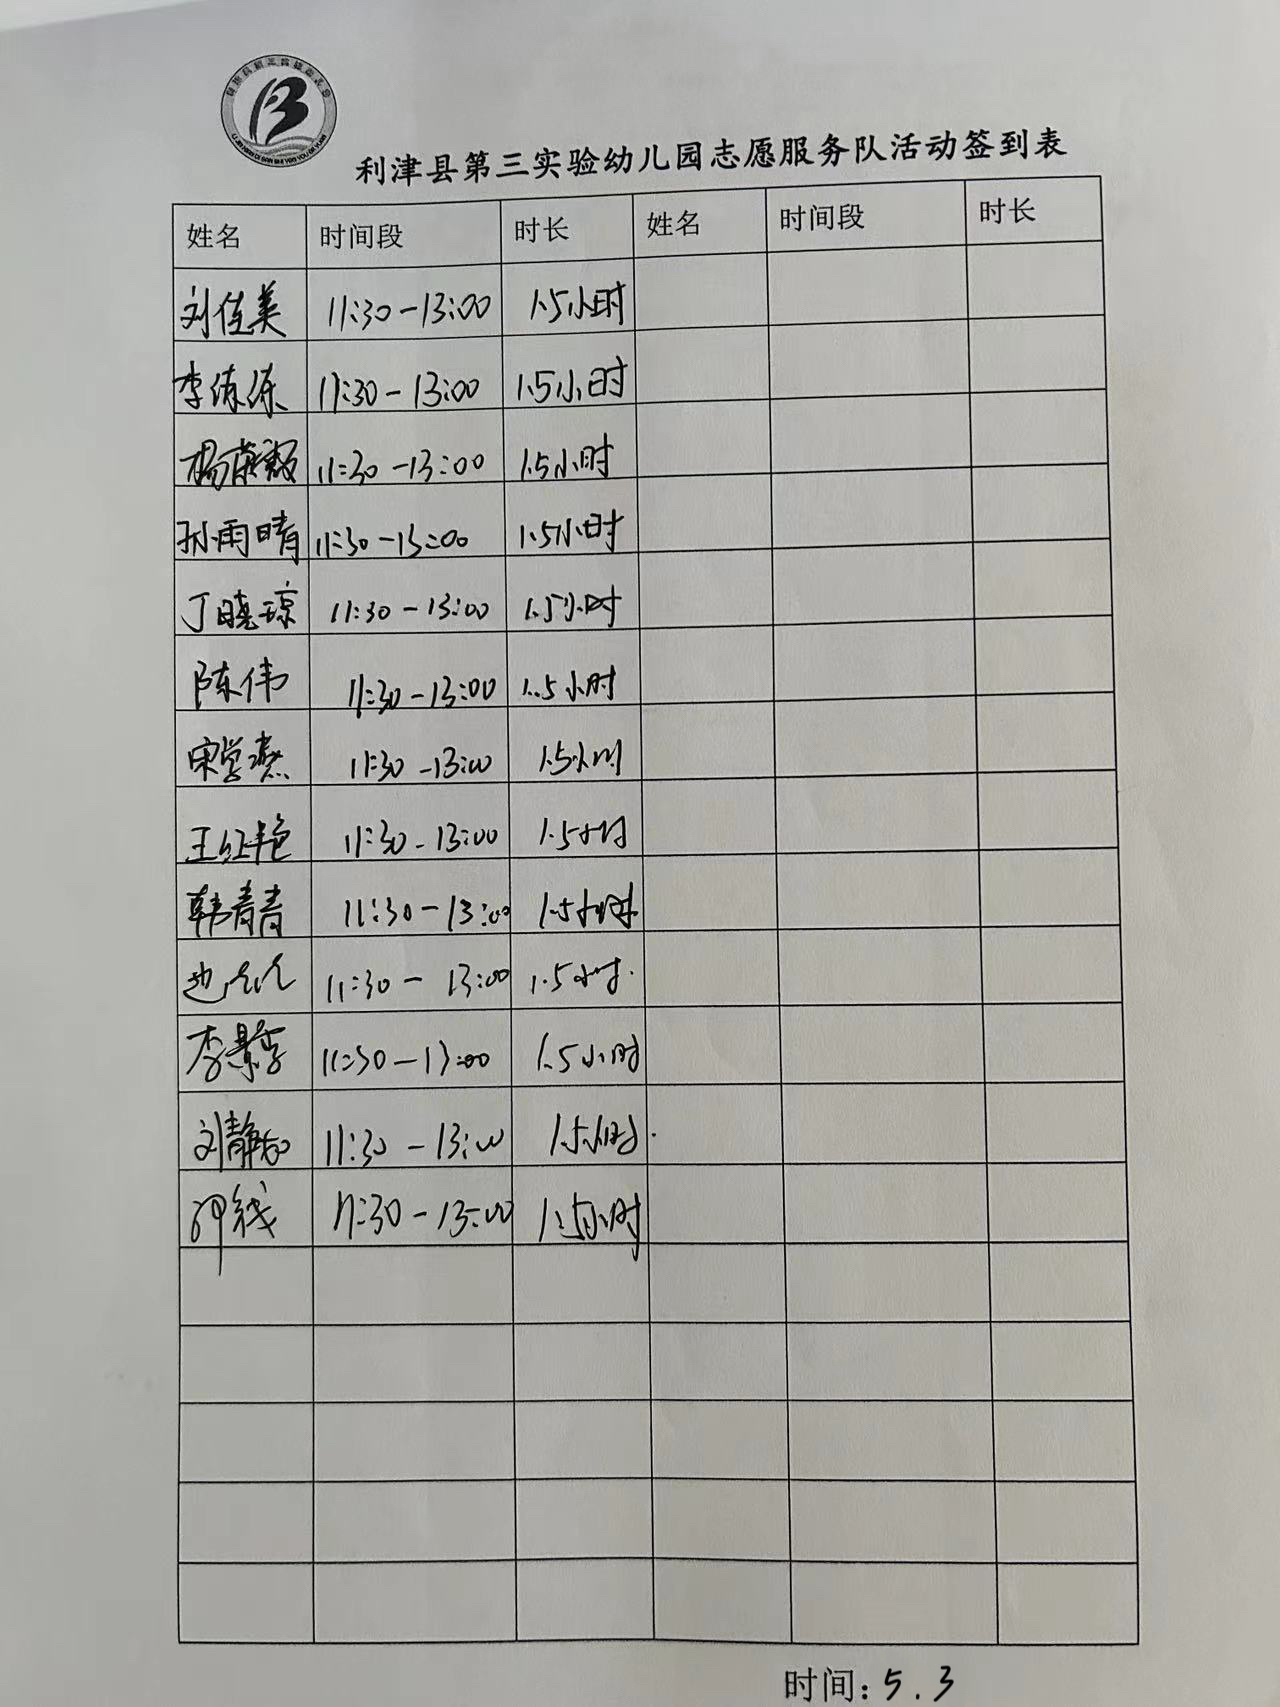 利津县第三实验幼儿园志愿服务队活动签到表
姓名 时间段 时长 姓名 时间段 时长
刘佳美 11:30-13:00 1.5小时
李练练 11:30-13:00 1.5小时
杨 11:30-13:00 1.5小时
孙雨晴 11:30-13:00 1.5小时
丁晓琼 11:30-13:00 1.5小时
陈伟 11:30-13:00 1.5小时
宋学燕 11:30-13:00 1.5小时
王红艳 11:30-13:00 1.5小时
韩青青 11:30-13:00 1.5小时
边 11:30-13:00 1.5小时.
李景 11:30-13:00 1.5小时
刘静 11:30-13:00 1.5小时.
11:30-13:00 1.5小时
时间:5.3